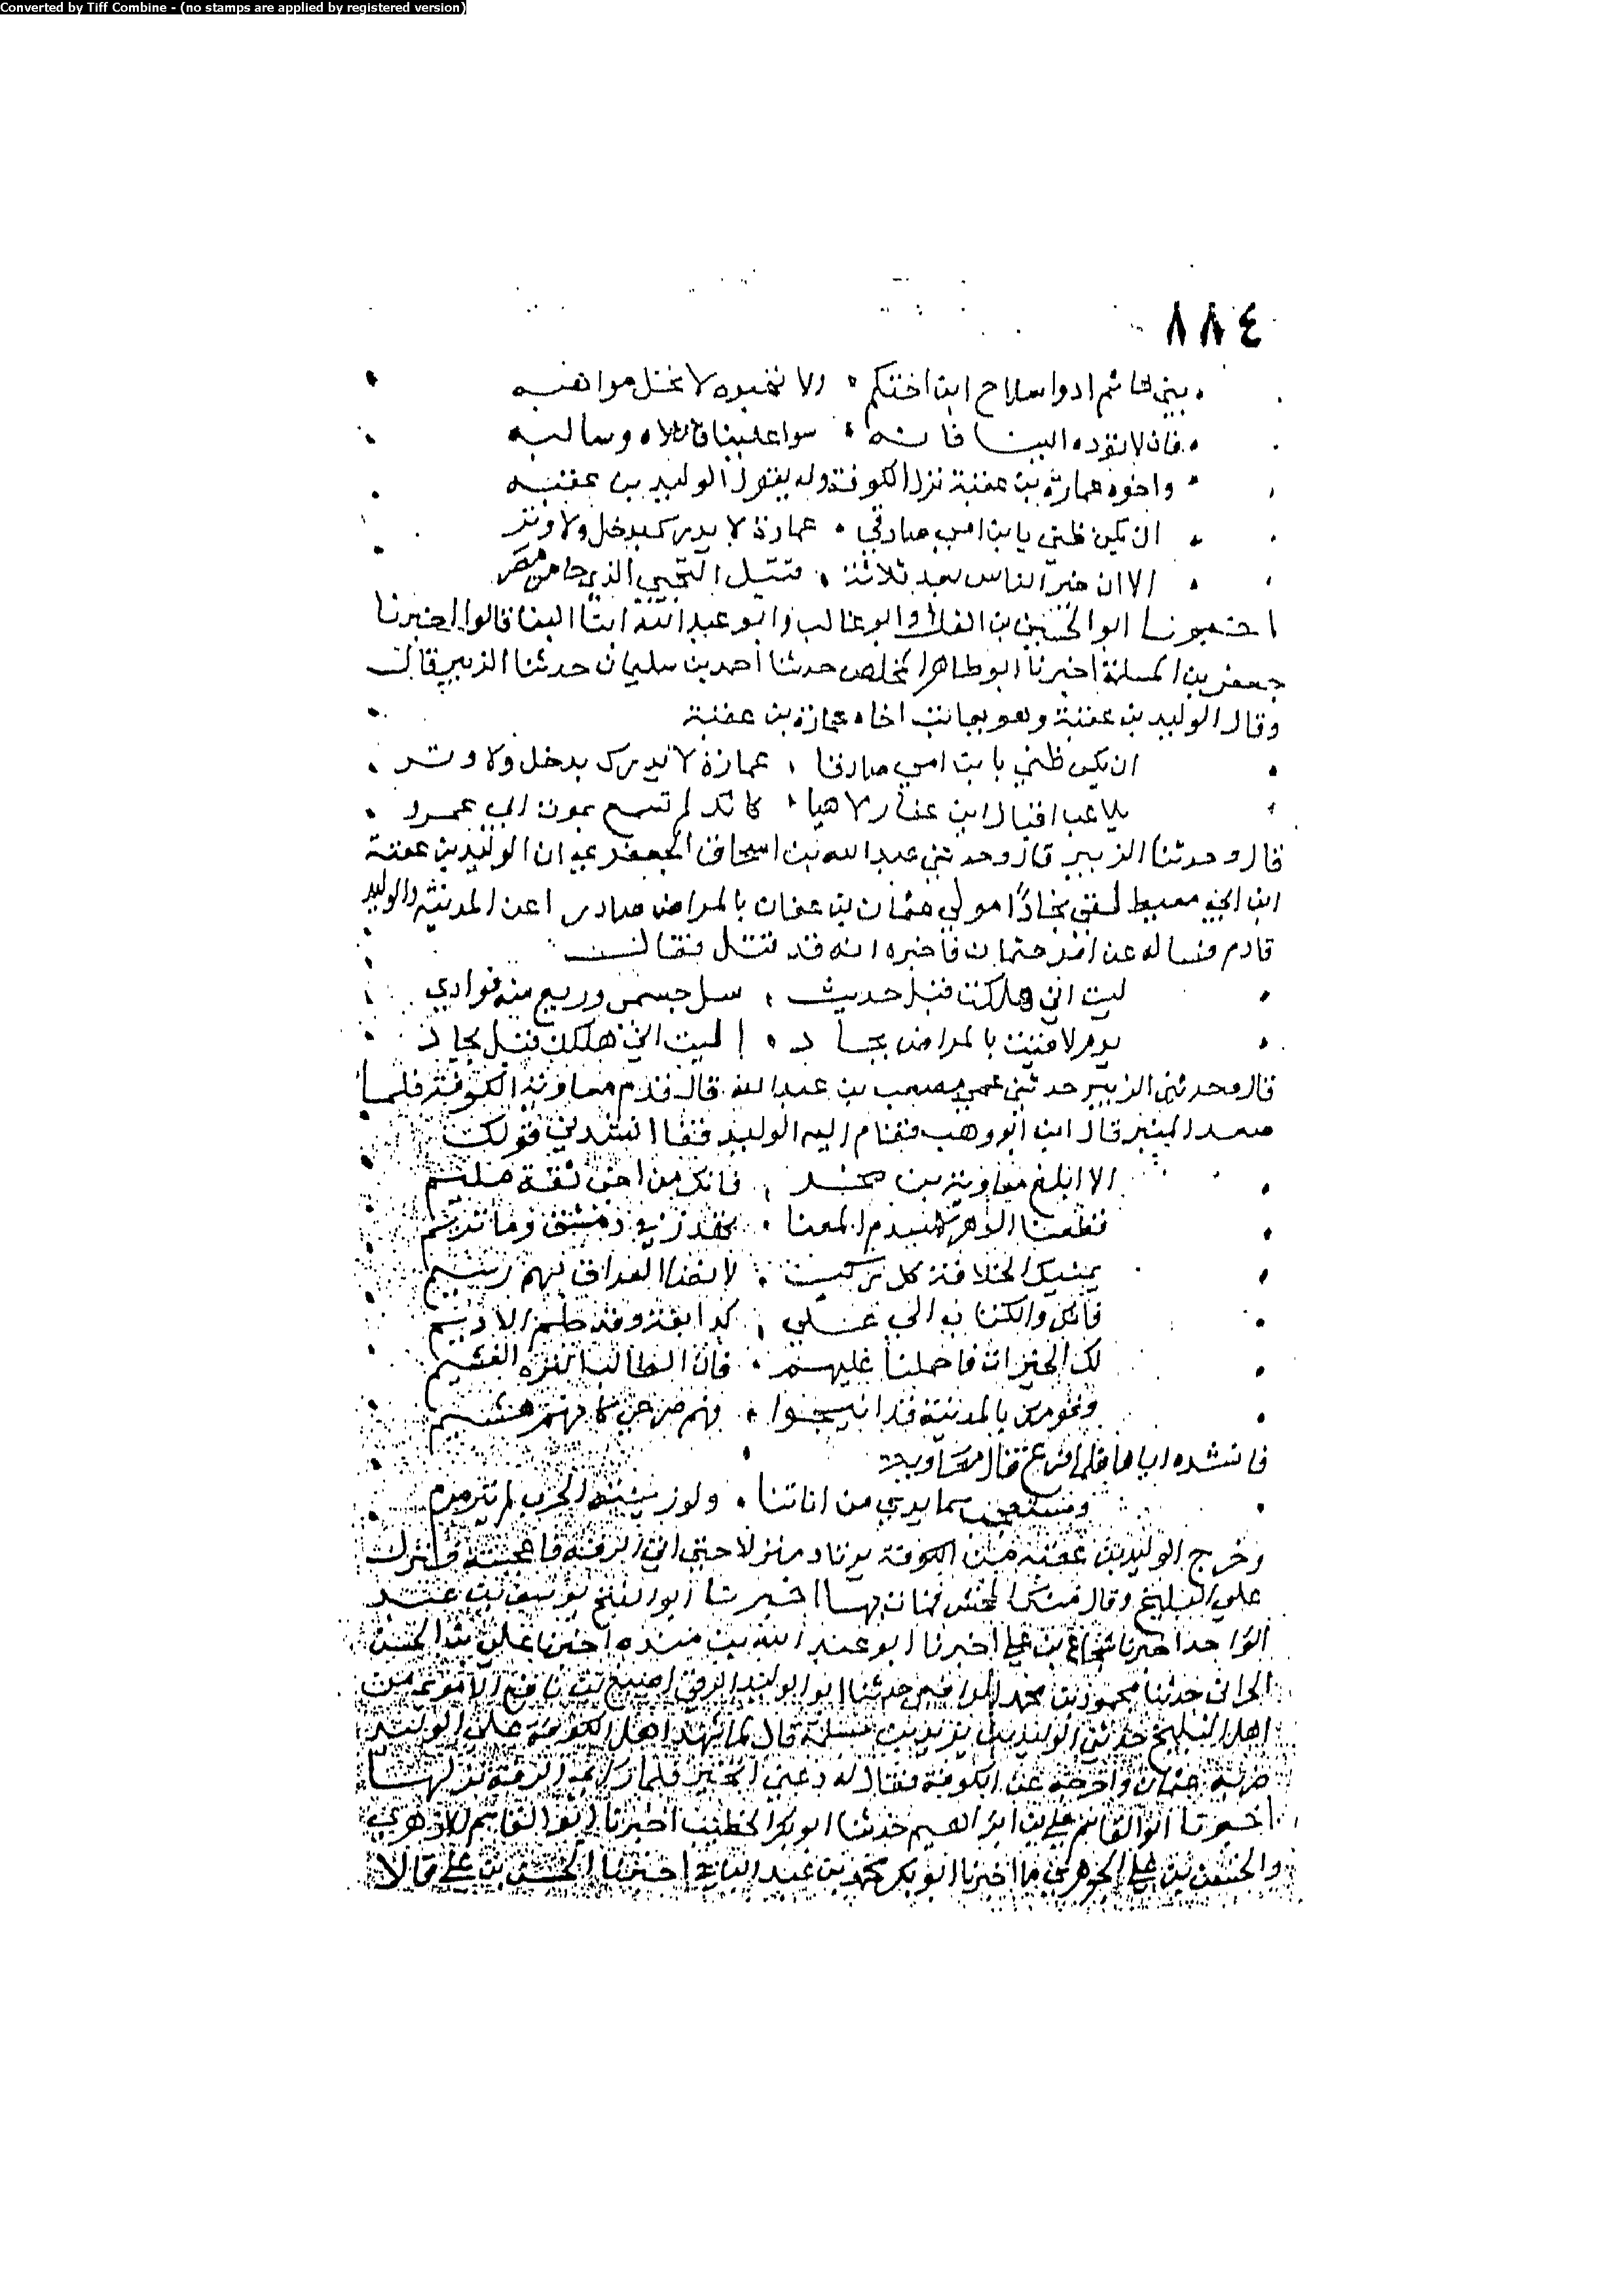 Converted by Tiff Combine - (no stamps are applied by registered version)
٨٨٤
بني هاشم ادوا سلاح ابن اختكم ولا تنهبوه لا تحل مواهبه
فان لا تؤده الينا فانه سوا علينا قاتلاه وسالبه
واخوه عمارة بن عقبة نزل الكوفة وله يقول الوليد بن عقبه
ان يكن ظني يا بن امي صادقي عمارة لا يدرك بدخل ولا وتر
الا ان خير الناس بعد ثلاثة قتيل التجيبي الذي جا من مصر
اخبرنا ابو الحسين بن الفراء وابو غالب وابو عبد الله ابنا البنا قالوا اخبرنا
جعفر بن المسلمة اخبرنا ابو طاهر المخلص حدثنا احمد بن سليمان حدثنا الزبير قال
وقال الوليد بن عقبة وهو يعاتب اخاه عمارة بن عقبة
ان يكن ظني يا بن امي صادقا عمارة لا يدرك بدخل ولا وتر
يلاعب اقتال ابن عفان لاهيا كانك لم تسمع بموت ابي عمرو
قال وحدثنا الزبير قال وحدثني عبد الله بن اسحاق الجعفري ان الوليد بن عقبة
ابن ابي معيط لقي بجادا مولى عثمان بن عفان بالمراض صادرا عن المدينة والوليد
قادم فساله عن امر عثمان فاخبره انه قد قتل فقال
ليت اني هلكت قبل حديث سل جسمي وريع منه فوادي
يوم لاقيت بالمراض بجاد ليت اني هلكت قبل بجاد
قال وحدثني الزبير حدثني عمي مصعب بن عبد الله قال قدم معاوية الكوفة فلما
صعد المنبر قال ابن ابو وهب فقام اليه الوليد فقا انشدني قولك
الا ابلغ معاوية بن صخر فانك من اخي ثقة مليم
قطعت الدهر كالسدم المعنا تهدر في دمشق وما تريم
يمنيك الخلافة كل ركب لانضا العراق بهم رسيم
فانك والكتاب الى علي كدابغة وقد حلم الاديم
لك الخيرات فاحملنا عليهم فان الطالب التره الغشيم
وقومك بالمدينة قد انيخوا فهم صرعى كانهم هشيم
فانشده اياها فلما فرغ قال معاوية
ومستعجب مما يرى من اناتنا ولو زبنته الحرب لم يترمرم
وخرج الوليد بن عقبة من الكوفة يرتاد منزلا حتى اتى الرقة فاعجبته فنزل
على البليخ وقال منك المحشر فمات بها اخبرنا ابو الفتح يوسف بن عبد
الواحد اخبرنا شجاع بن علي اخبرنا ابو عبد الله بن منده اخبرنا علي بن الحسن
الحراني حدثنا محمود بن محمد الرافقي حدثنا ابو الوليد الرقي اصبغ بن نافع الاموي من
اهل البليخ حدثني الوليد بن يزيد بن مسلمة قال لما شهد اهل الكوفة على الوليد
ضربه عثمان واخرجه عن الكوفة فقال له دعني اتخير فلما راى الرقة نزلها
اخبرنا ابو القاسم علي بن ابراهيم حدثنا ابو بكر الخطيب اخبرنا ابو القاسم الازهري
والحسن بن علي الجوهري ما اخبرنا ابو بكر محمد بن عبد الباقي اخبرنا الحسن بن علي قالا